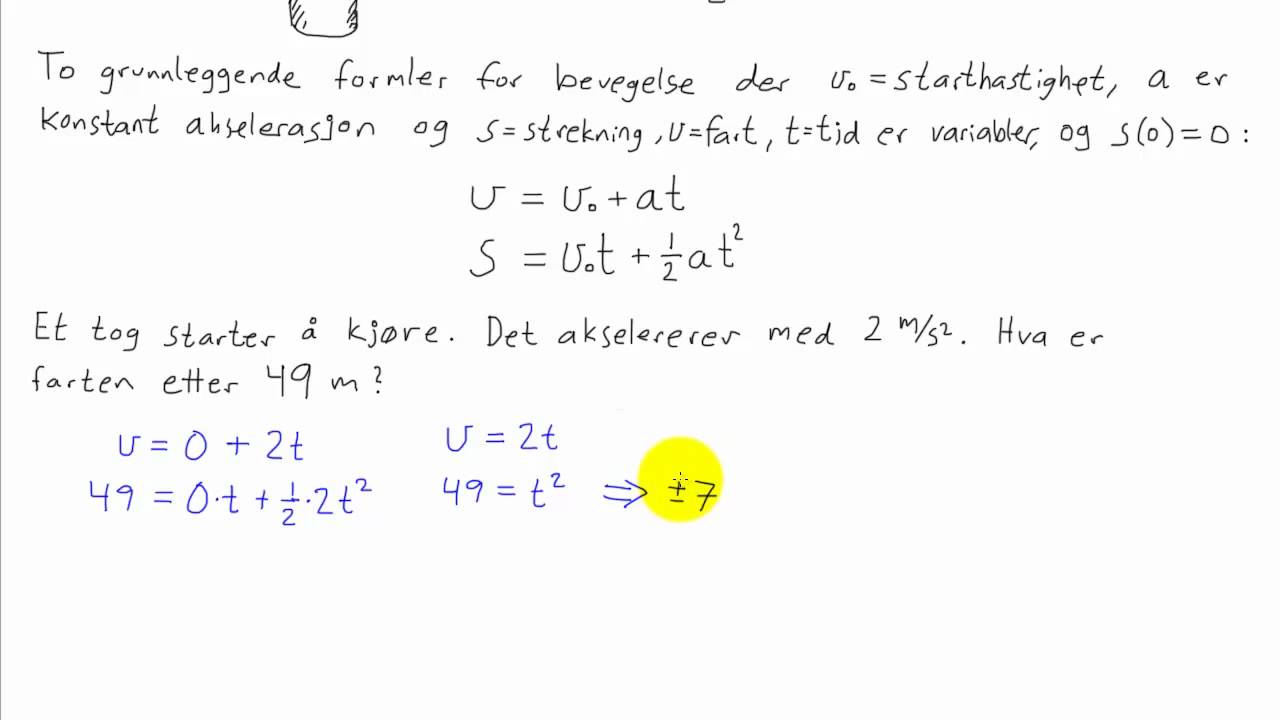 To grunnleggende formler for bevegelse der v₀ = starthastighet, a er
konstant akselerasjon og s = strekning, v = fart, t = tid er variabler, og s(0) = 0 :
v = v₀ + at
s = v₀t + ½ at²
Et tog starter å kjøre. Det akselererer med 2 m/s². Hva er
farten etter 49 m?
v = 0 + 2t v = 2t
49 = 0·t + ½·2t² 49 = t² ⇒ ±7